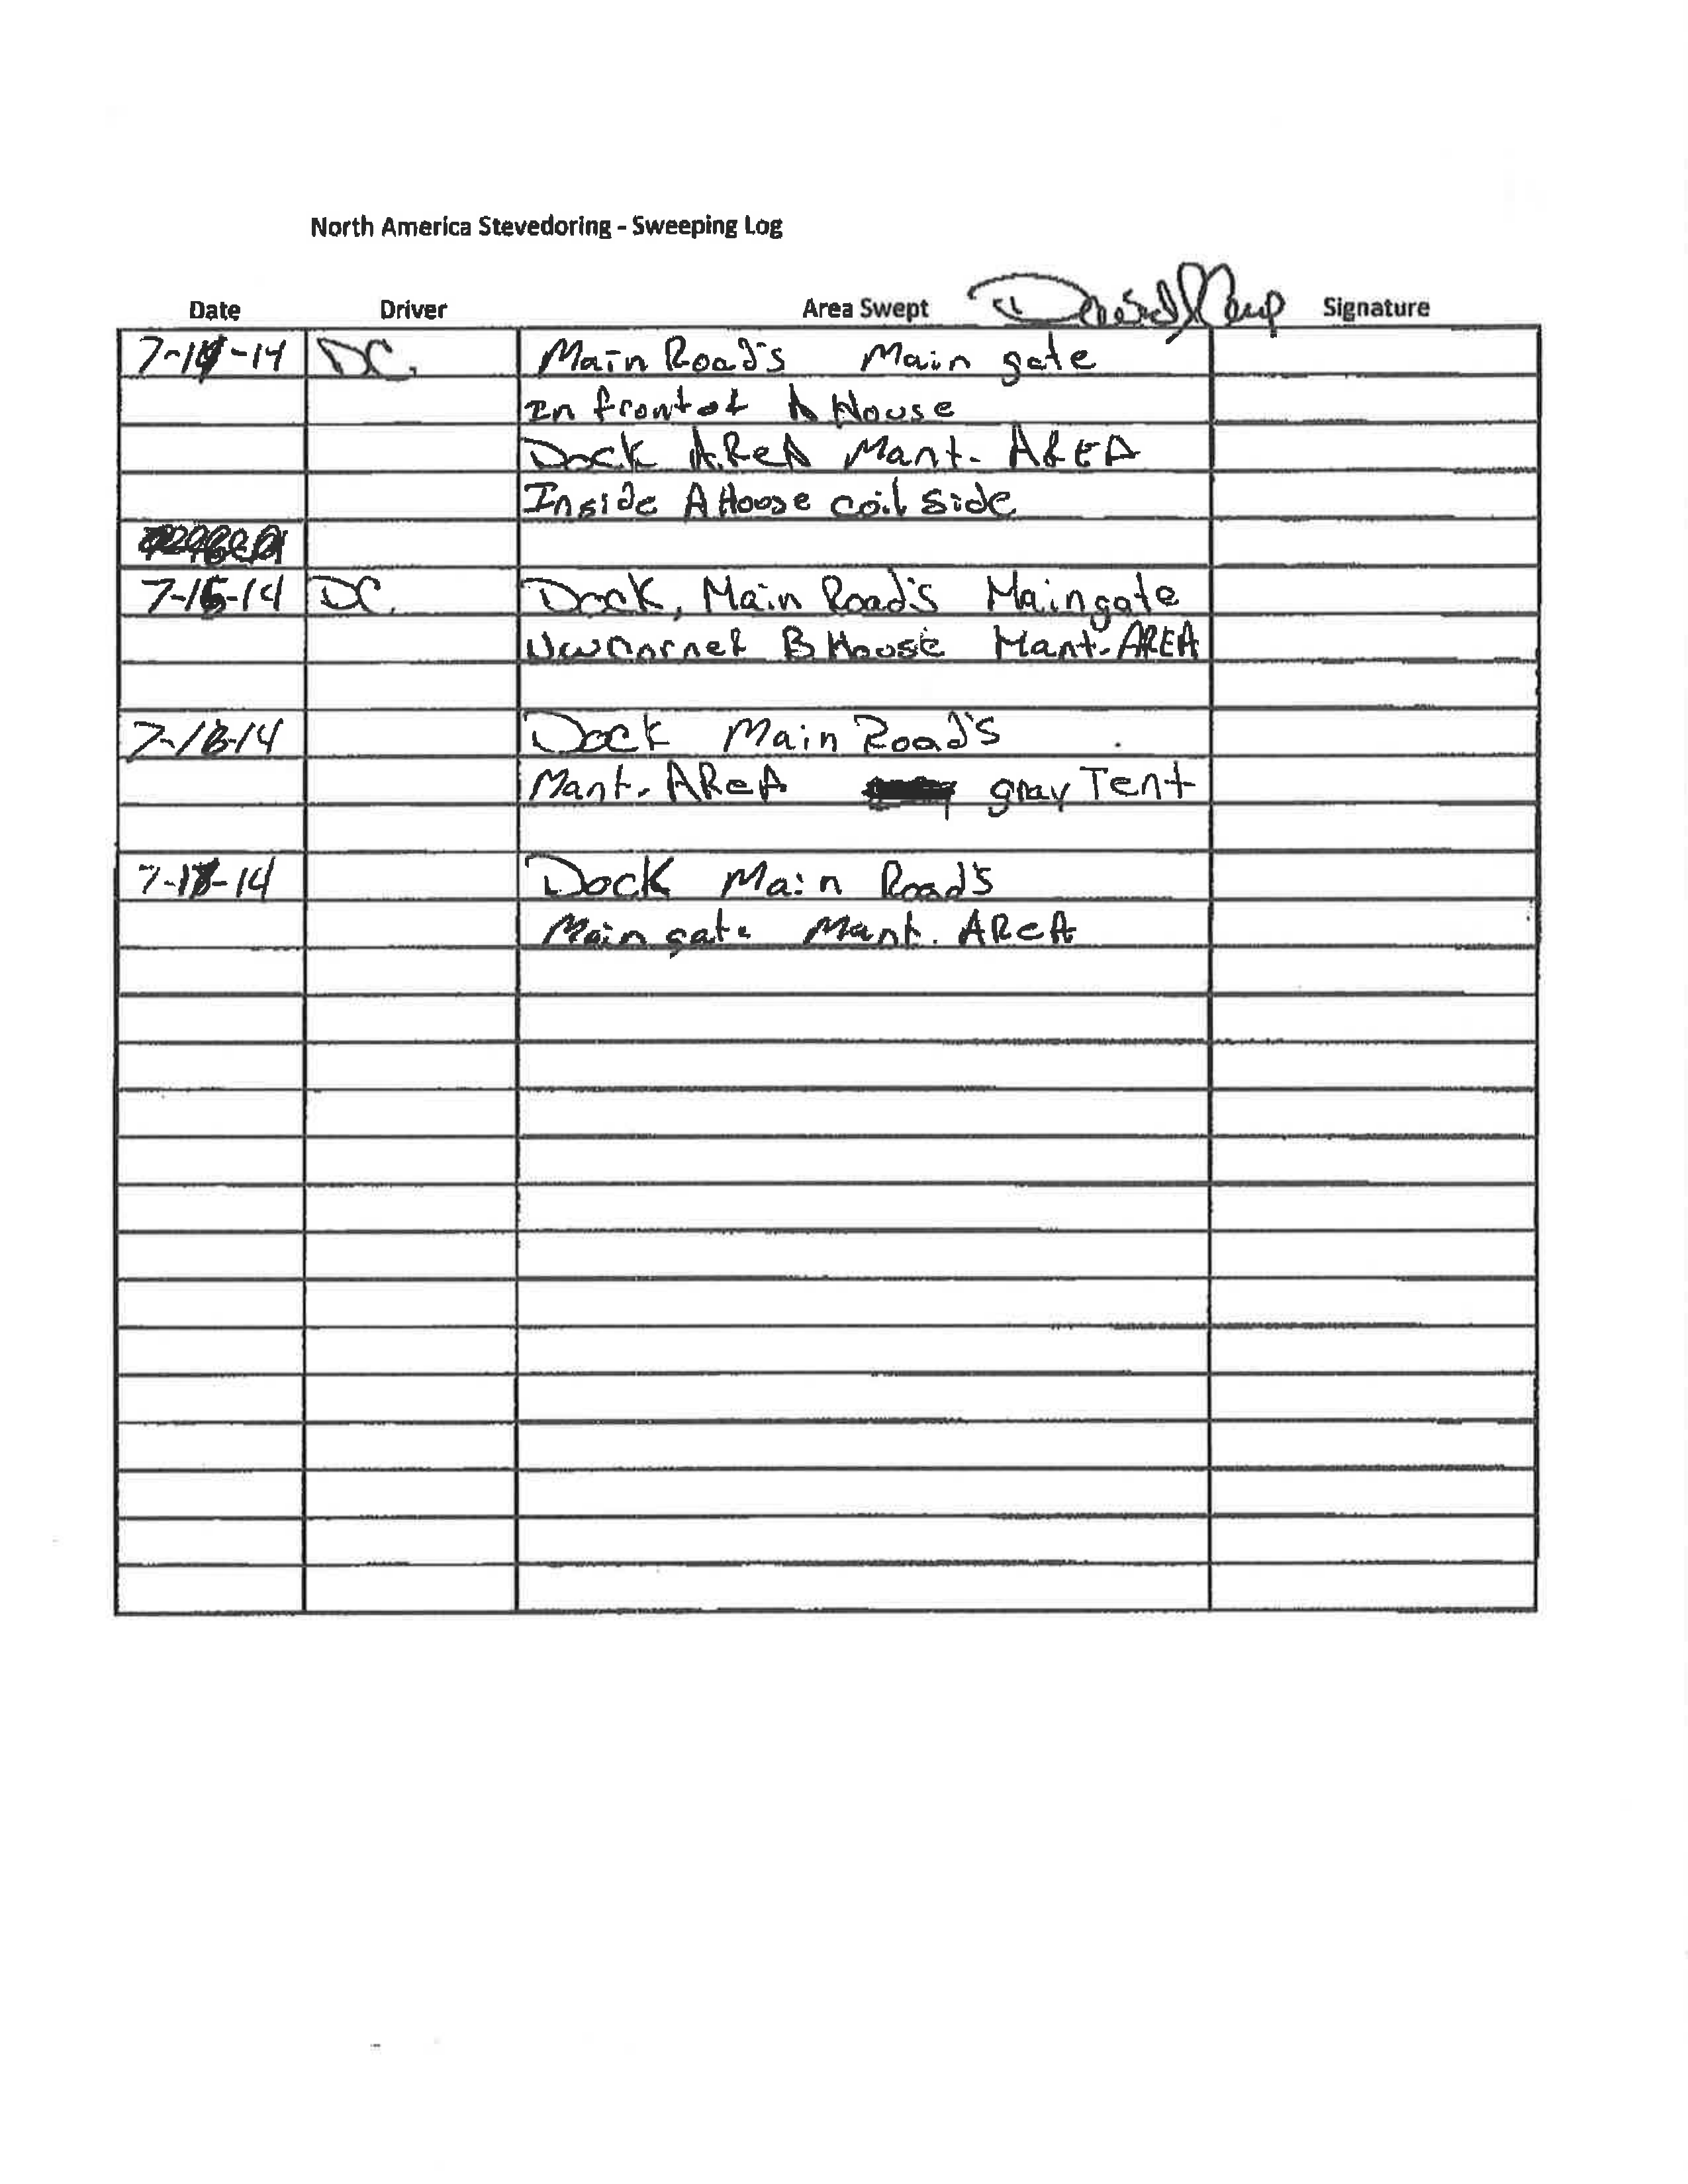 North America Stevedoring - Sweeping Log
Date Driver Area Swept Signature
7-14-14 DC. Main Road's Main gate
In front of A House
Dock AReA Mant. AREA
Inside A House coil side
7-15-14 DC. Dock, Main Road's Main gate
NW Corner B House Mant. AREA
7-16-14 Dock Main Road's
Mant. AReA gray Tent
14 Dock Main Road's
Main gate Mant. AReA